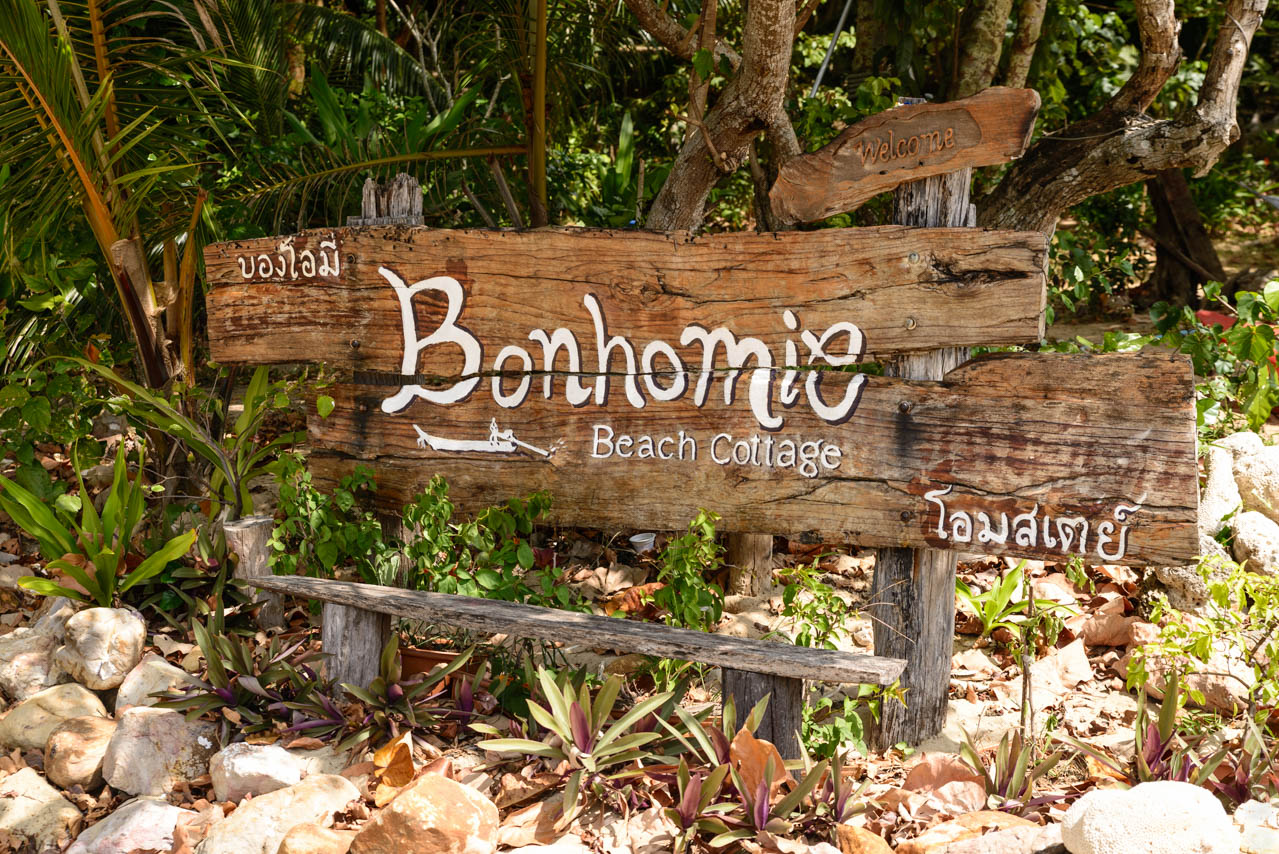 Welcome
บองโฮมี
Bonhomie
Beach Cottage
โฮมสเตย์